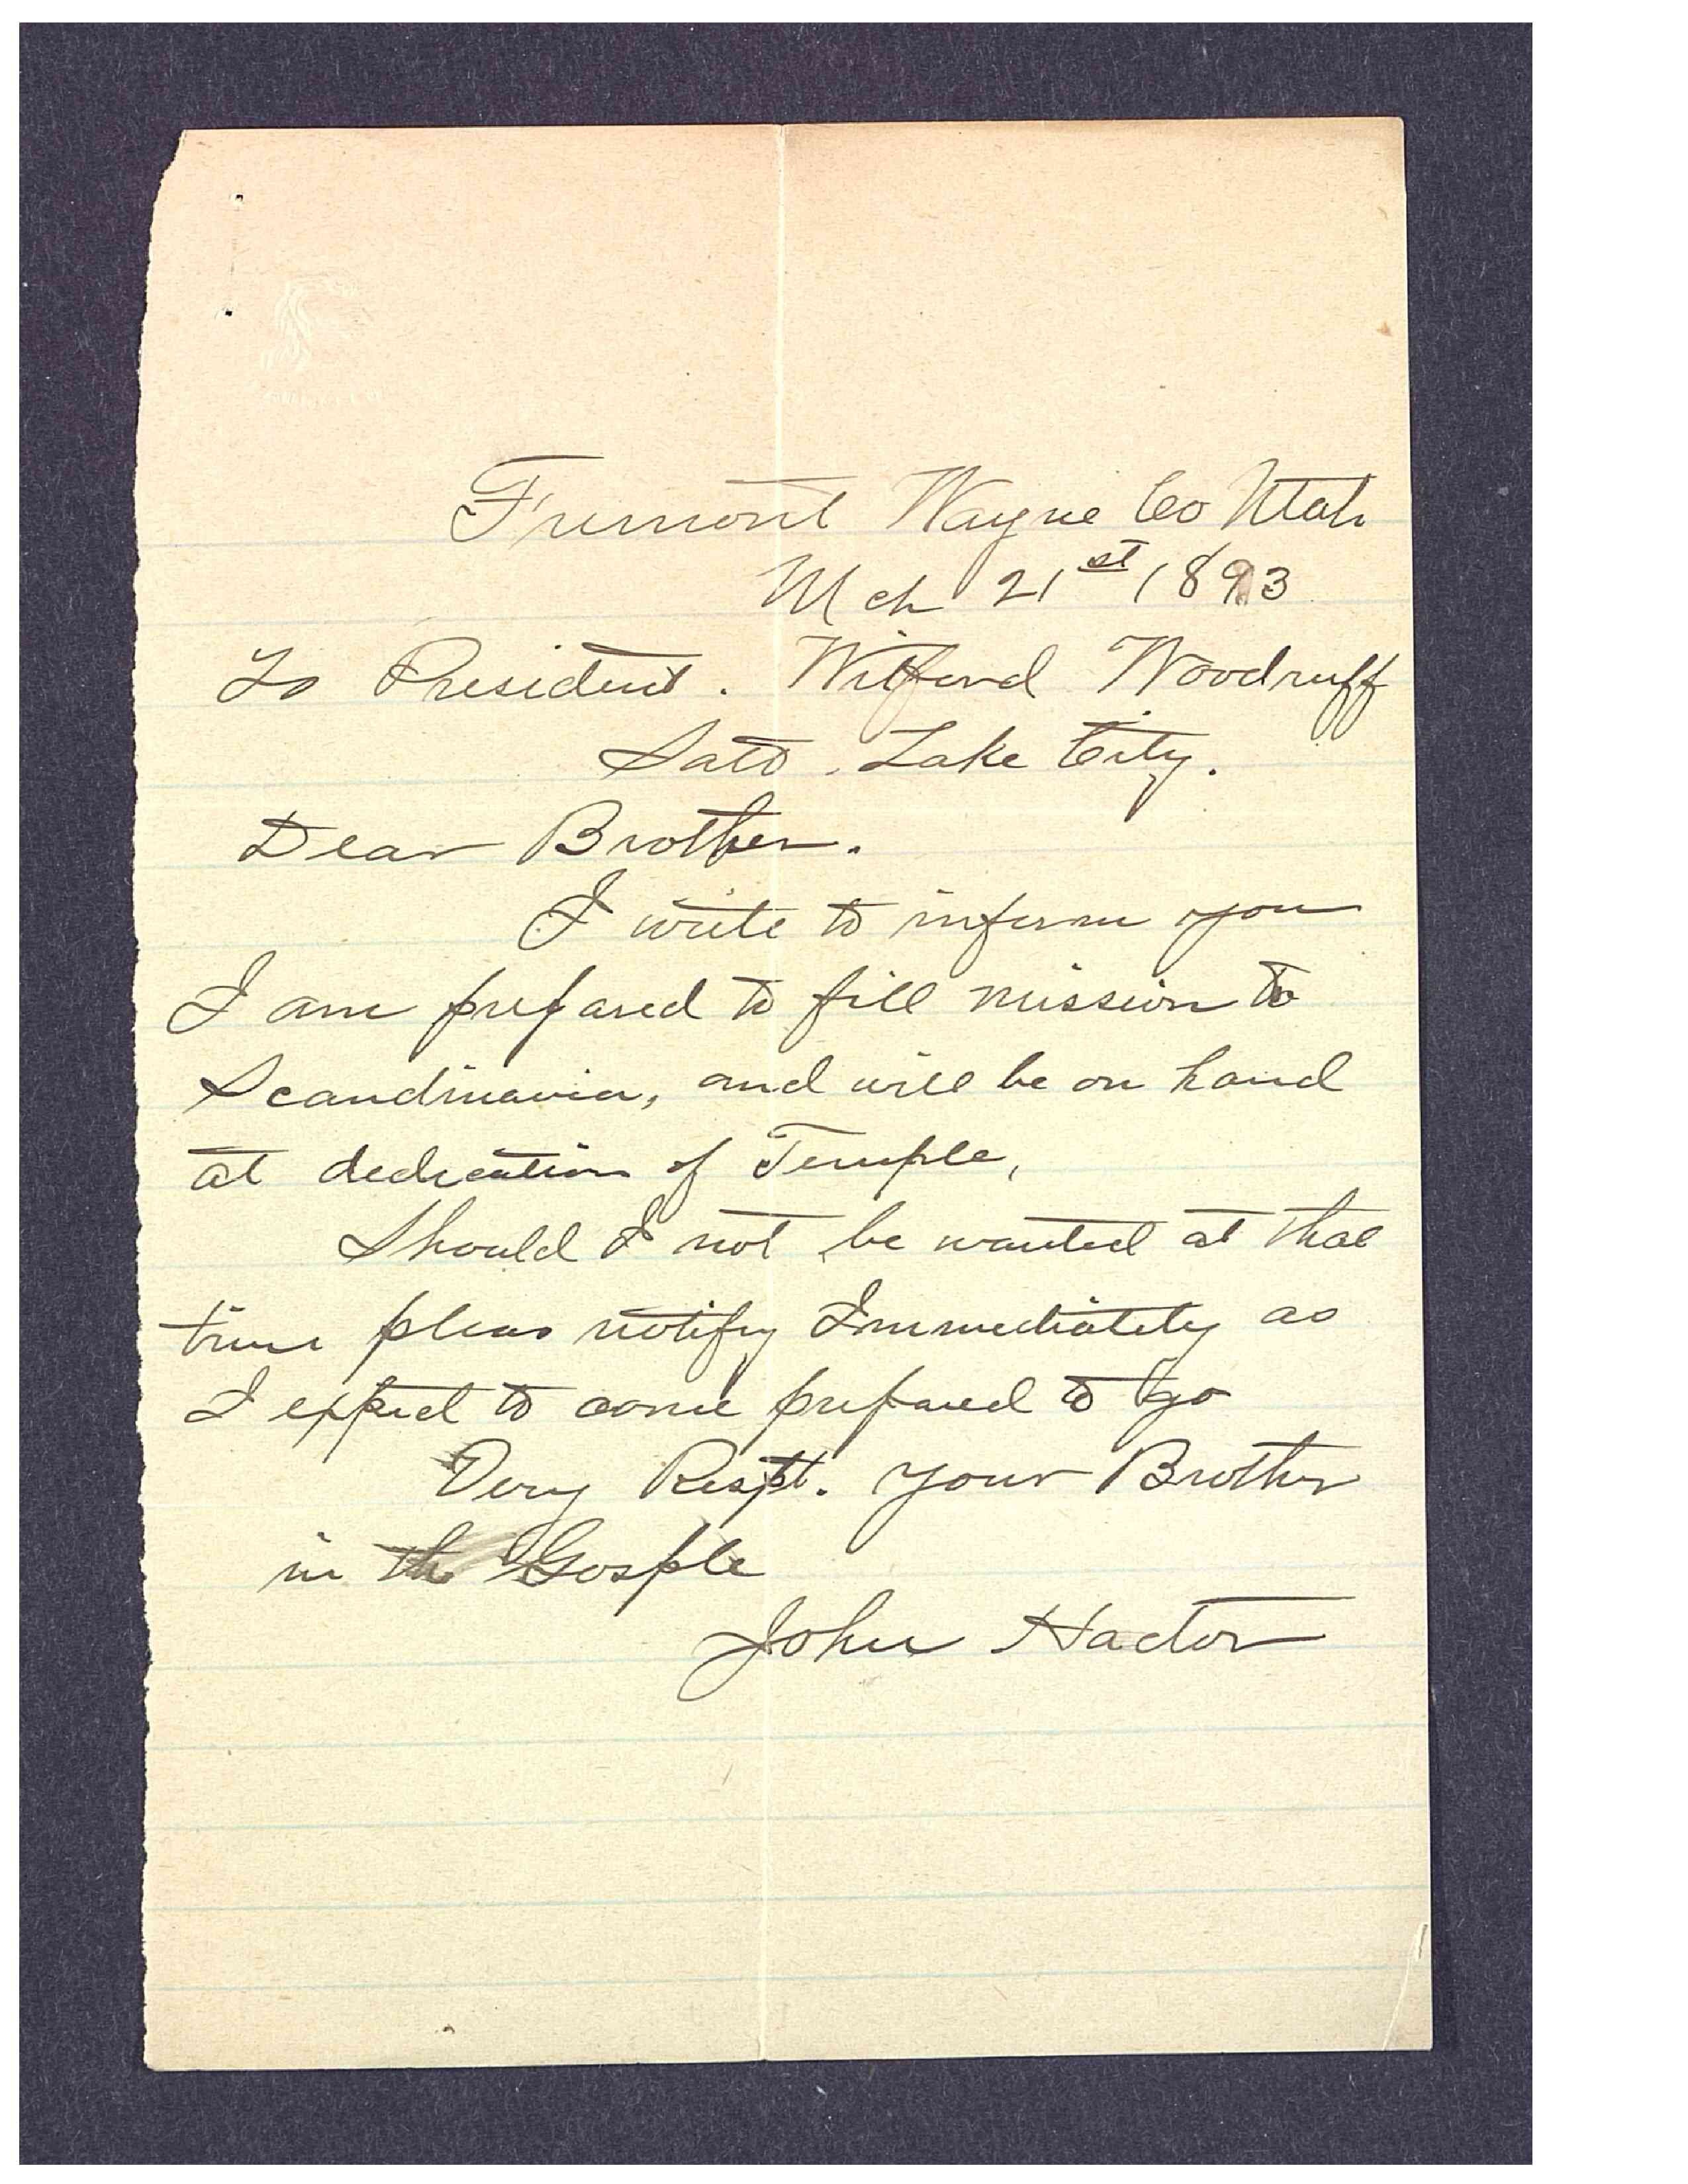 Fremont Wayne Co Utah
Mch 21st 1893
To President. Wilford Woodruff
Salt Lake City.
Dear Brother.
I write to inform you
I am prepared to fill mission to
Scandinavia, and will be on hand
at dedication of Temple,
Should I not be wanted at that
time pleas notify Immediately as
I expect to come prepared to go
Very Respt. your Brother
in the Gosple
John Hector